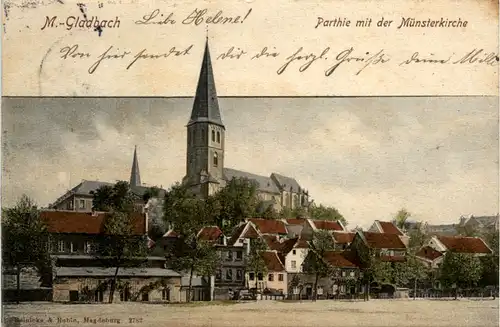 M.-Gladbach Liebe Helene! Parthie mit der Münsterkirche
Von hier sendet dir die herzl. Grüsse deine
Reinicke & Rubin, Magdeburg